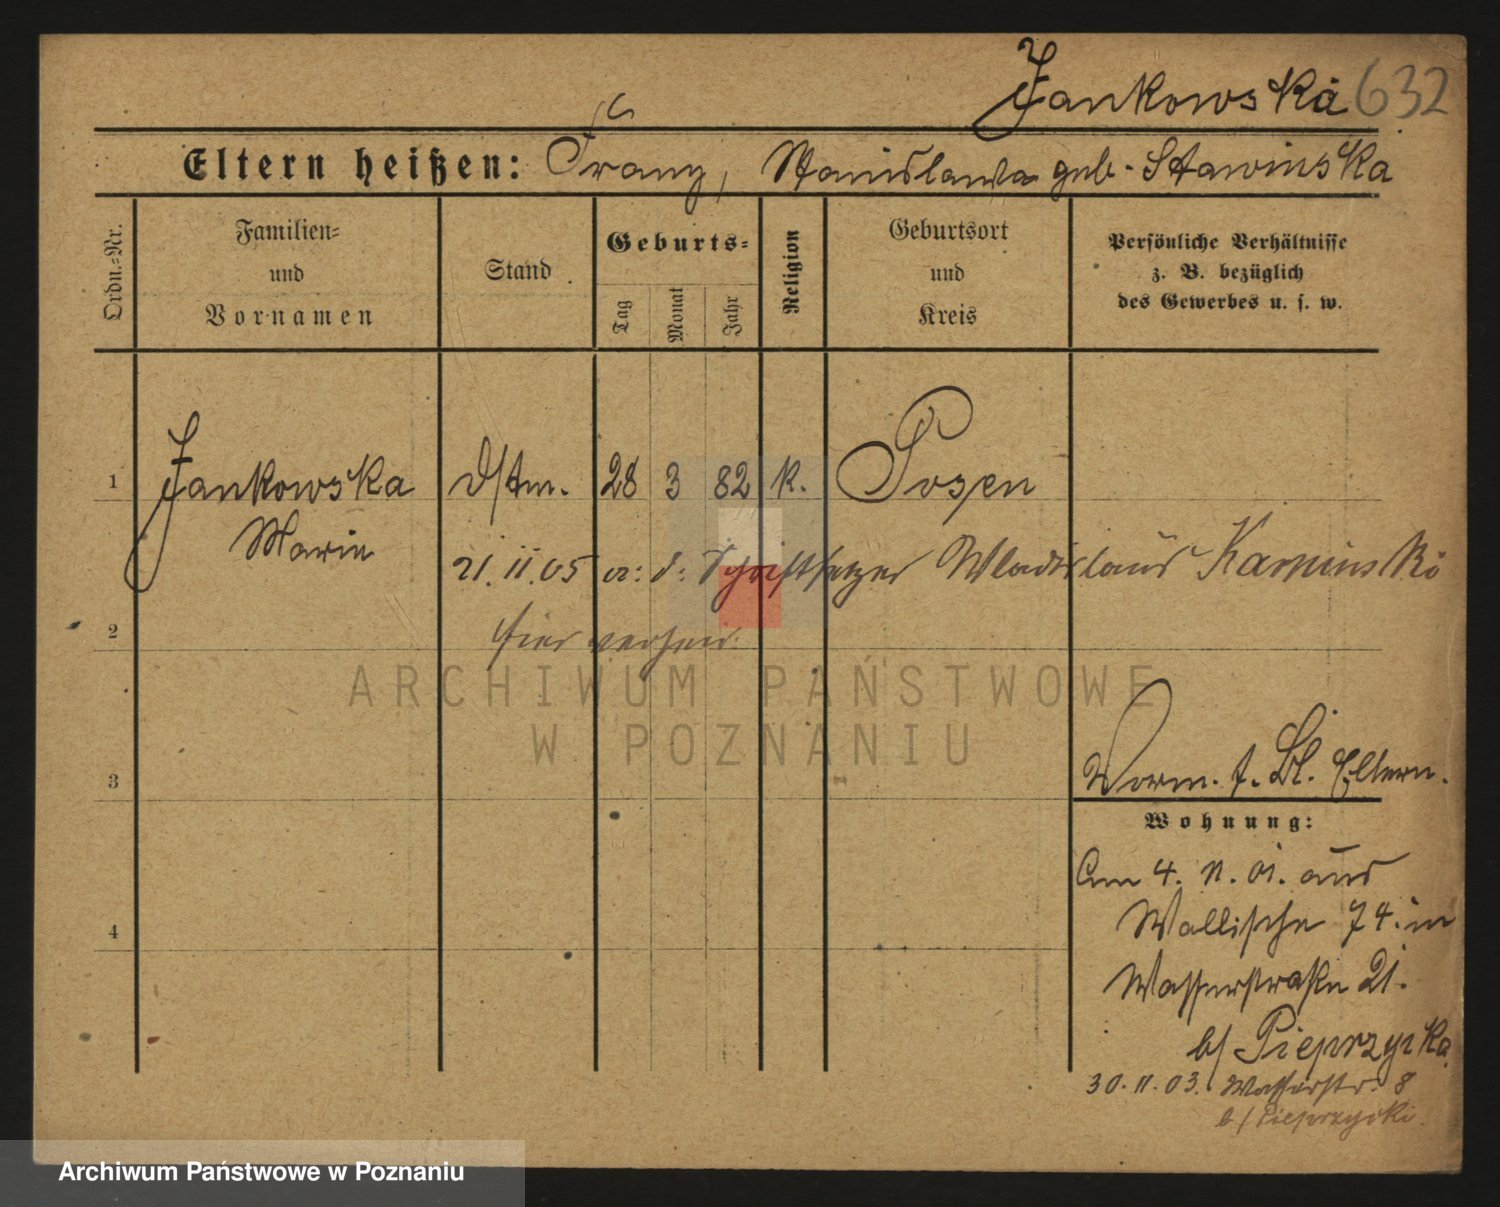 Jankowska 632
Eltern heißen: Franz, Stanislawa geb. Stawinska
Ordn.=Nr.
Familien=
und
Vornamen
Stand
Geburts=
Tag
Monat
Jahr
Religion
Geburtsort
und
Kreis
Persönliche Verhältnisse
z. B. bezüglich
des Gewerbes u. s. w.
1 Jankowska 28 3 82 k. Posen
Marie
21.11.05 Schriftsetzer Wladislaus Kaminski
2 hier
ARCHIWUM PAŃSTWOWE
W POZNANIU
3 Eltern.
Wohnung:
Am 4. 11. 01. aus
4 Wallische 74. in
Wasserstraße 21.
b/ Pieprzycka
30.11.03. Wasserstr. 8
b/ Pieprzycki
Archiwum Państwowe w Poznaniu